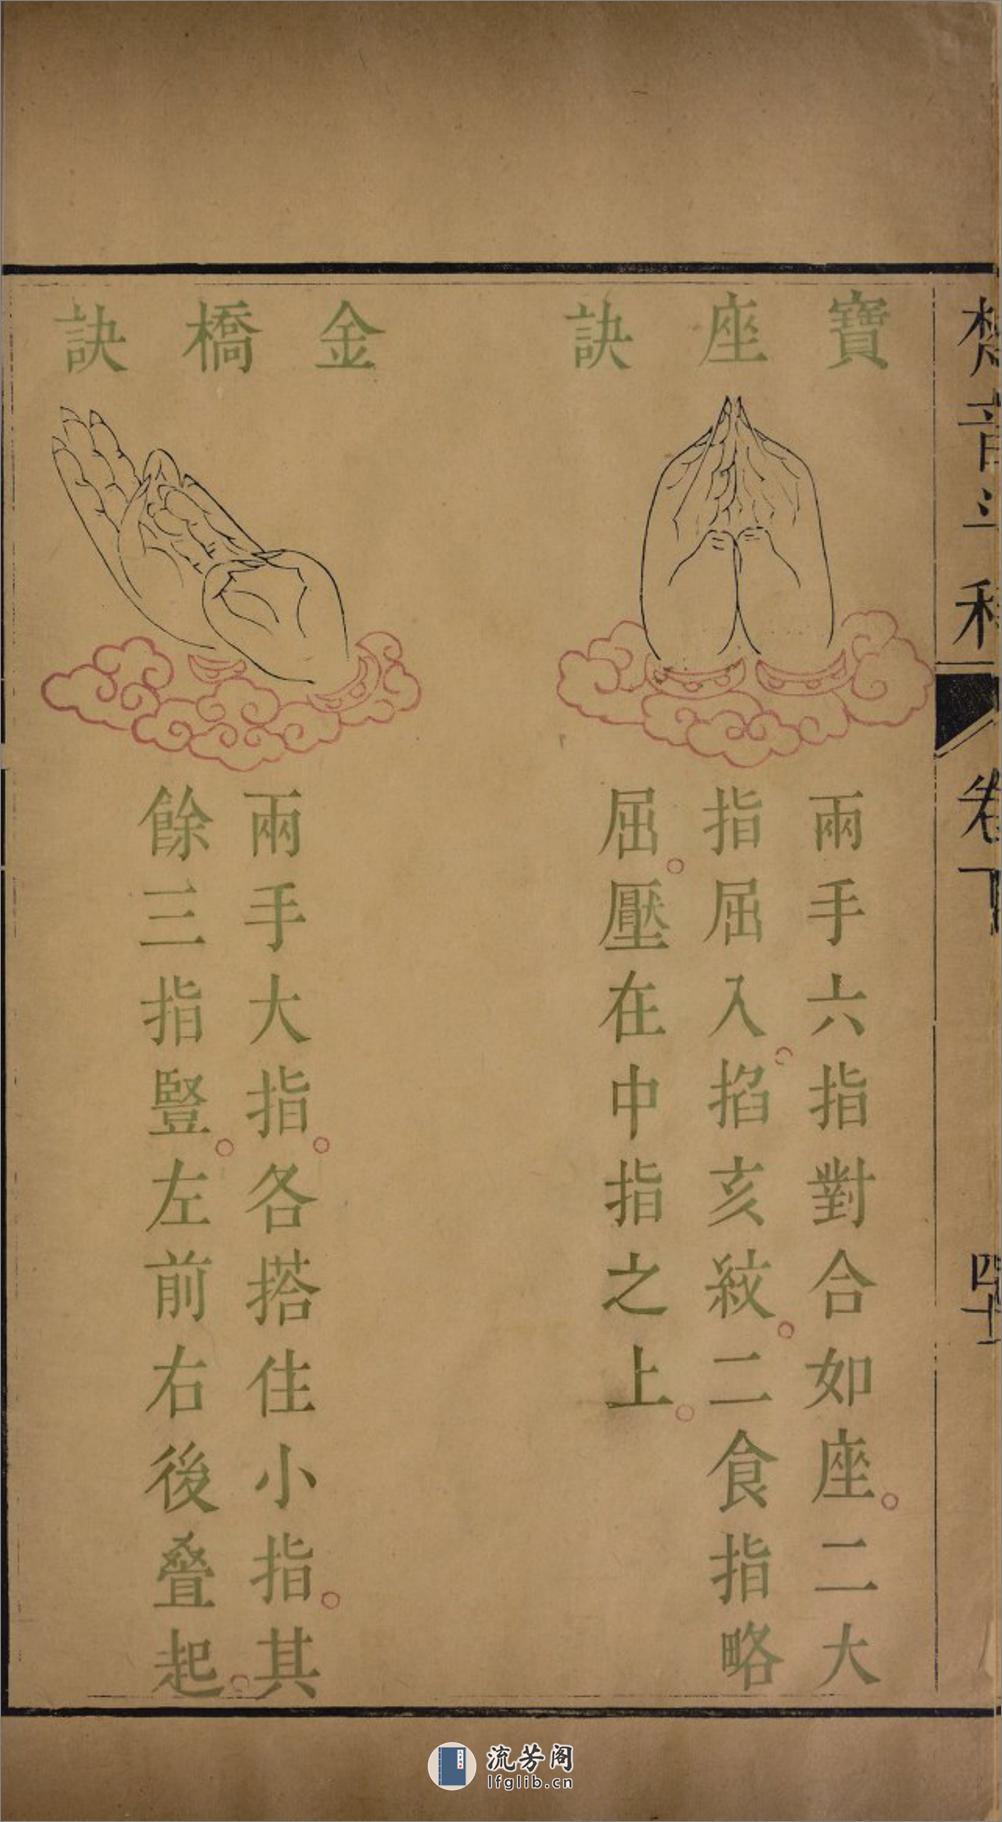 梵音斗科
卷下
四十
寶座訣
兩手六指對合如座。二大
指屈入。掐亥紋。二食指略
屈。壓在中指之上。
金橋訣
兩手大指。各搭住小指。其
餘三指豎。左前右後叠起。
流芳阁
lfglib.cn